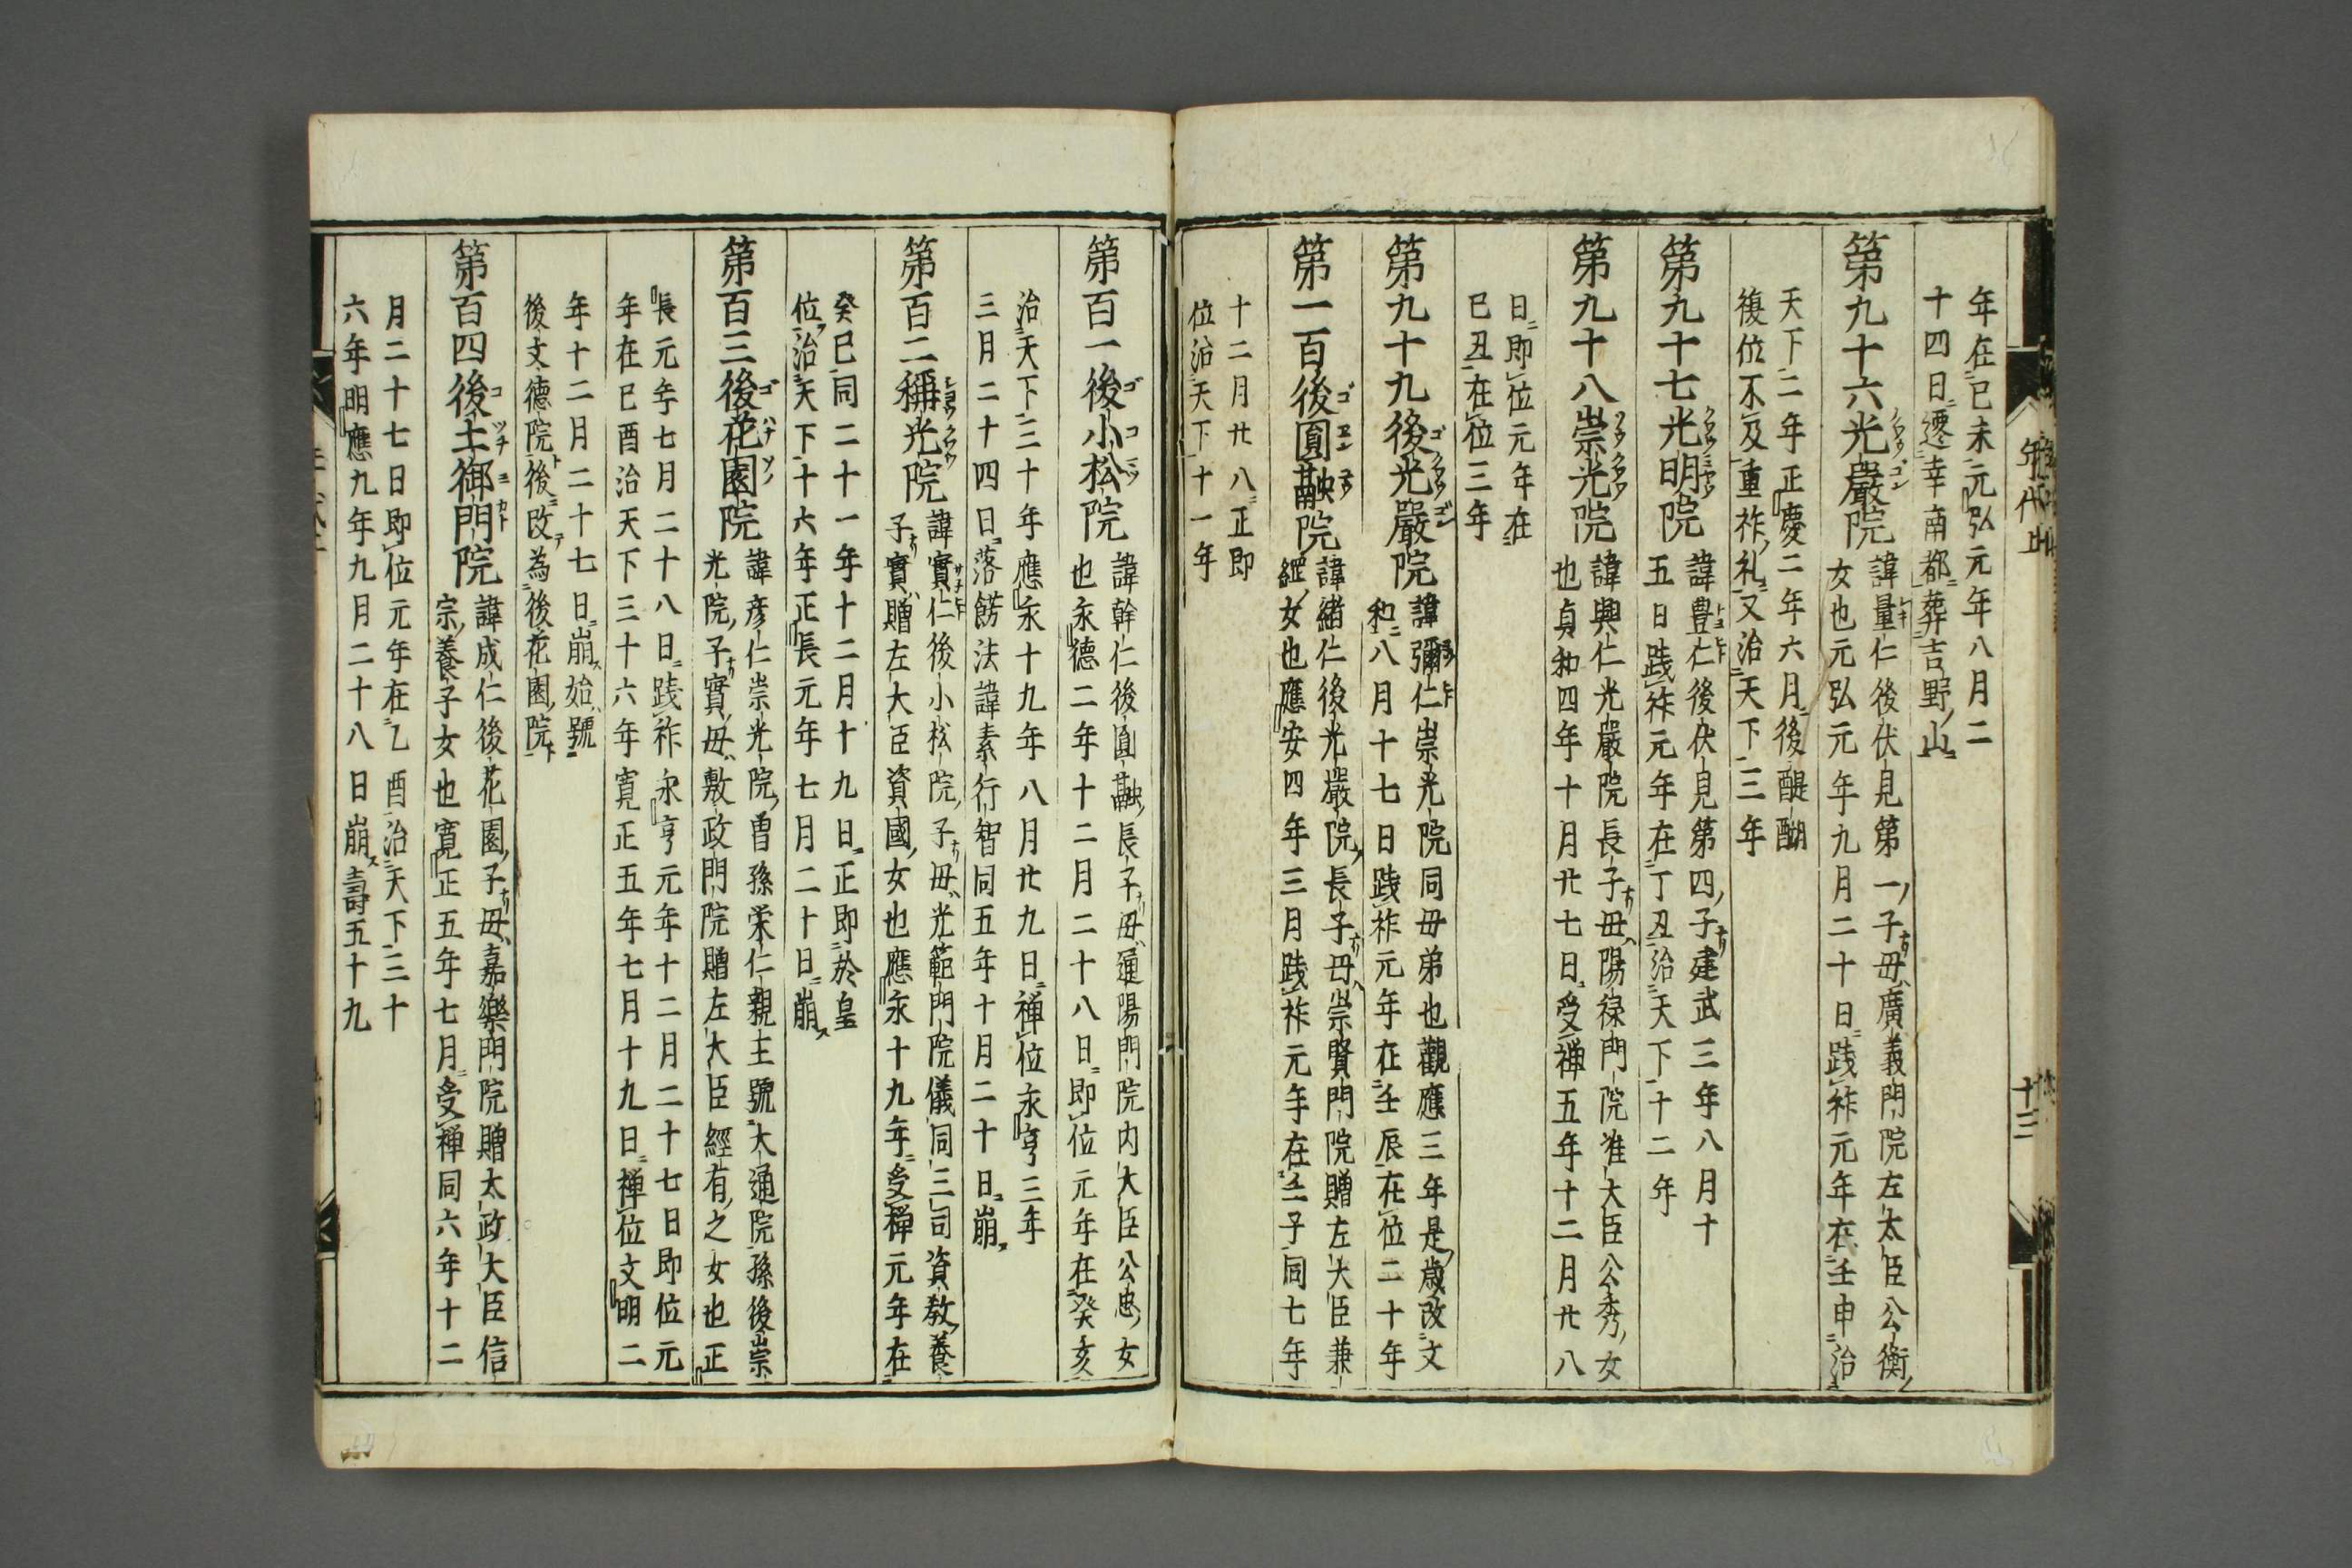 年在己未元弘元年八月二
十四日遷幸南都葬吉野山
第九十六光嚴院
諱量仁後伏見第一子母廣義門院左太臣公衡
女也元弘元年九月二十日踐祚元年在壬申治
天下二年正慶二年六月後醍醐
復位不及重祚礼又治天下三年
第九十七光明院
諱豊仁後伏見第四子建武三年八月十
五日踐祚元年在丁丑治天下十二年
第九十八崇光院
諱興仁光嚴院長子母陽禄門院准大臣公秀女
也貞和四年十月廿七日受禅五年十二月廿八
日即位元年在
己丑在位三年
第九十九後光嚴院
諱彌仁崇光院同母弟也觀應三年是歳改文
和八月十七日踐祚元年在壬辰在位二十年
第一百後圓融院
諱緒仁後光嚴院長子母崇賢門院贈左大臣兼
綱女也應安四年三月踐祚元年在壬子同七年
十二月廿八正即
位治天下十一年
十三
第百一後小松院
諱幹仁後圓融長子母通陽門院内大臣公忠女
也永德二年十二月二十八日即位元年在癸亥
治天下三十年應永十九年八月廿九日禅位永享三年
三月二十四日落餝法諱素行智同五年十月二十日崩
第百二稱光院
諱實仁後小松院子母光範門院儀同三司資教養
子實贈左大臣資國女也應永十九年受禅元年在
癸巳同二十一年十二月十九日正即於皇
位治天下十六年正長元年七月二十日崩
第百三後花園院
諱彦仁崇光院曽孫栄仁親王號大通院孫後崇
光院子實母敷政門院贈左大臣經有之女也正
長元年七月二十八日踐祚永享元年十二月二十七日即位元
年在己酉治天下三十六年寛正五年七月十九日禅位文明二
年十二月二十七日崩始號
後文德院後改為後花園院
第百四後土御門院
諱成仁後花園子母嘉樂門院贈太政大臣信
宗養子女也寛正五年七月受禅同六年十二
月二十七日即位元年在乙酉治天下三十
六年明應九年九月二十八日崩壽五十九